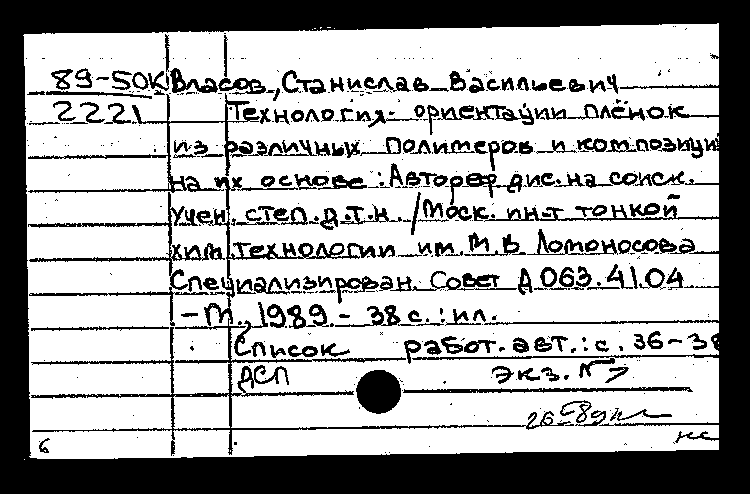 89-50К Власов, Станислав Васильевич
2221 Технология ориентации плёнок
из различных полимеров и композиций
на их основе : Автореф дис. на соиск.
учен. степ. д.т.н. / Моск. ин-т тонкой
хим. технологии им. М.В Ломоносова
Специализирован. Совет Д 063.41.04
- М., 1989. - 38 с. : ил.
Список работ. авт.: с. 36-38
ДСП экз. №
6 нс